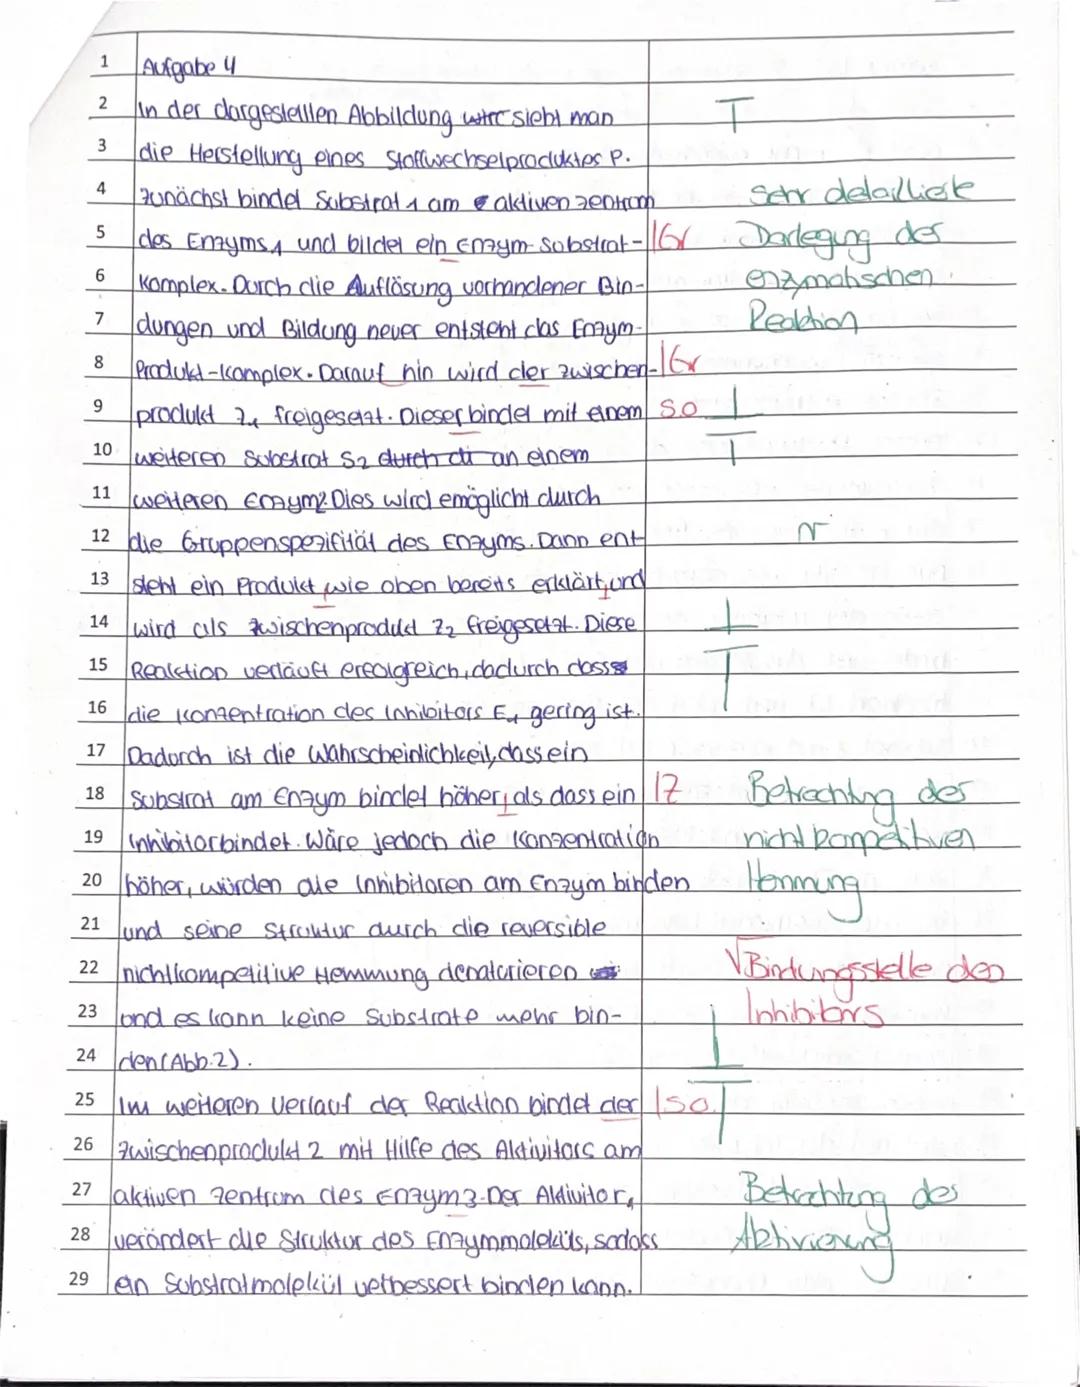 1 Aufgabe 4
2 In der dargestellten Abbildung wird sieht man T
3 die Herstellung eines Stoffwechselproduktes P.
4 Zunächst bindet Substrat 1 am aktiven Zentrum Sehr detaillierte
5 des Enzyms 1 und bildet ein Enzym-Substrat- |Gr Darlegung der
6 komplex. Durch die Auflösung vorhandener Bin- enzymatischen
7 dungen und Bildung neuer entsteht das Enzym- Reaktion
8 Produkt-komplex. Darauf hin wird der zwischen- |Gr
9 produkt Z1 freigesetzt. Dieser bindet mit einem so
10 weiteren Substrat S2 durch di an einem
11 weiteren Enzym2 Dies wird emöglicht durch
12 die Gruppenspezifität des Enzyms. Dann ent-
13 steht ein Produkt wie oben bereits erklärt, und
14 wird als Zwischenprodukt Z2 freigesetzt. Diese
15 Reaktion verläuft erfolgreich, dadurch dass
16 die Konzentration des Inhibitors E1 gering ist.
17 Dadurch ist die Wahrscheinlichkeit, dass ein
18 Substrat am Enzym bindet höher, als dass ein |Z Betrachtung der
19 Inhibitor bindet. Wäre jedoch die Konzentration nicht kompetitiven
20 höher, würden die Inhibitoren am Enzym binden Hemmung
21 und seine Struktur durch die reversible
22 nichtkompetitive Hemmung denaturieren √Bindungsstelle des
23 und es kann keine Substrate mehr bin- Inhibitors
24 den (Abb.2).
25 Im weiteren Verlauf der Reaktion bindet der |so.
26 Zwischenprodukt 2 mit Hilfe des Aktivitors am
27 aktiven Zentrum des Enzym 3. Der Aktivitor, Betrachtung der
28 verändert die Struktur des Enzymmoleküls, sodass Aktivierung
29 ein Substratmolekül verbessert binden kann.